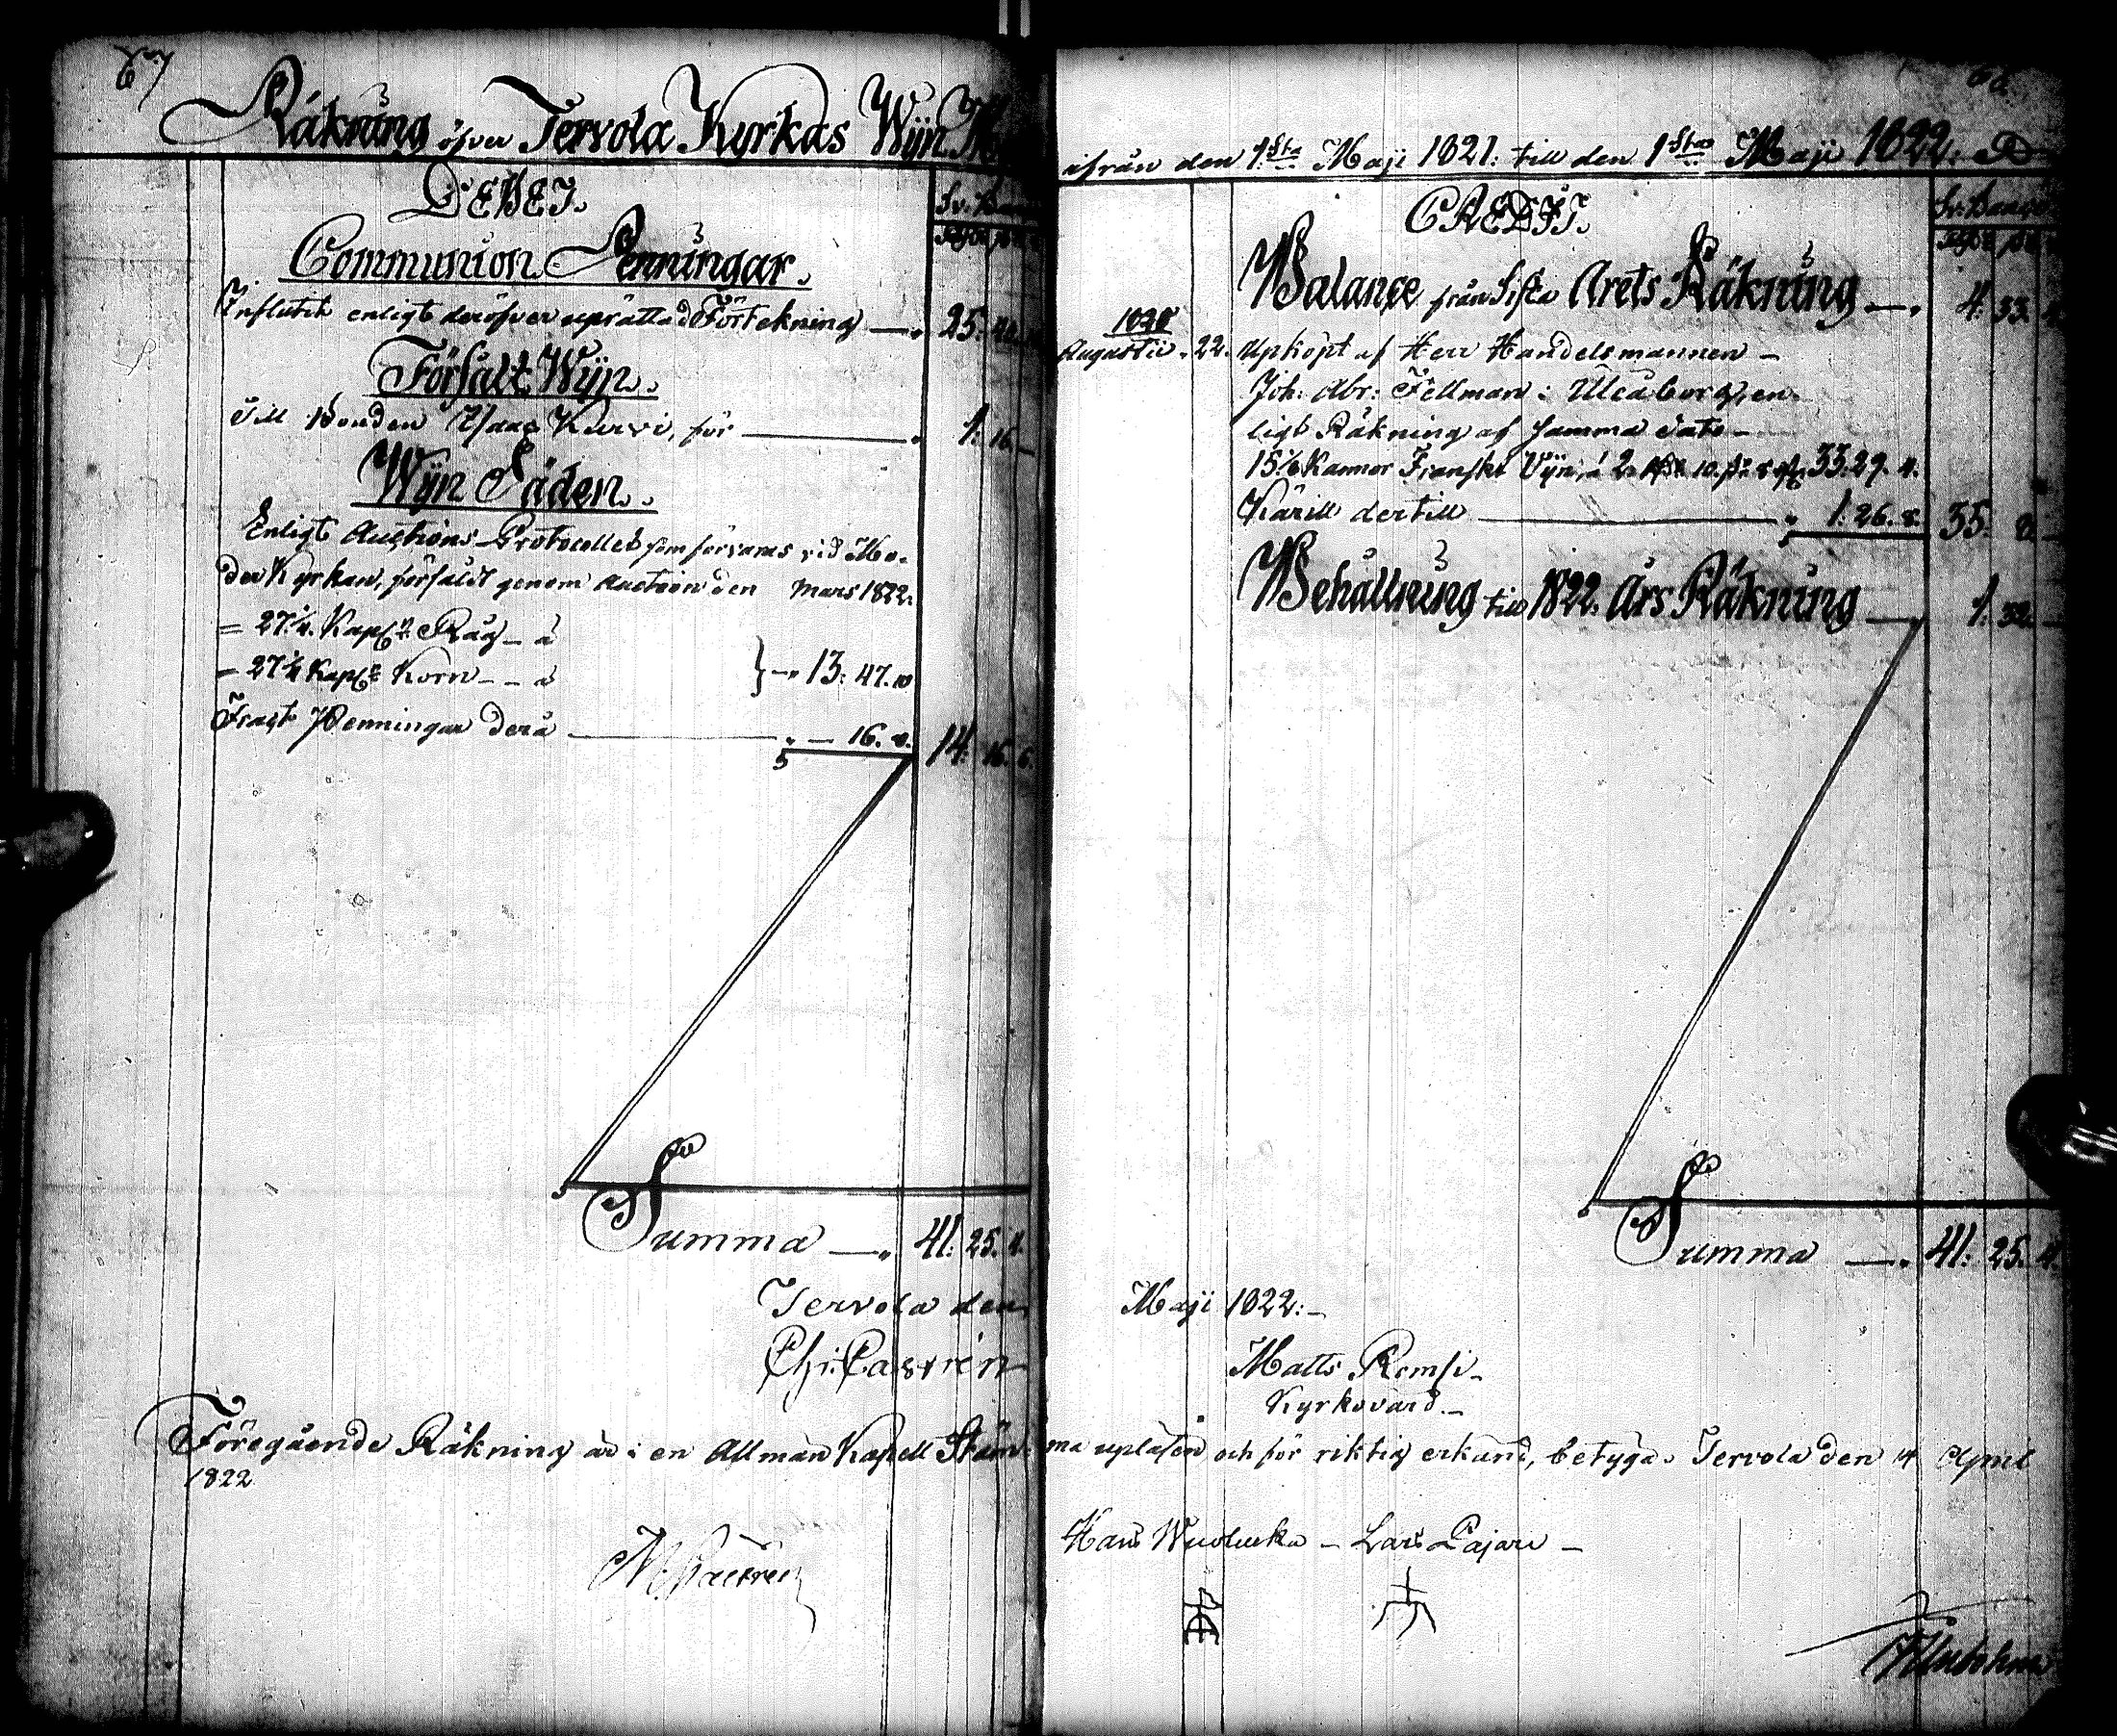 67
Räkning öfver Tervola Kyrkas Wijn
DEBET.
Sv. B
Communion Penningar.
Influtit enligt deröfver uprättad Förtekning — 25.
Försålt Wijn.
Till Bonden Isaac Kurvi, för — 1. 16. —
Wijn Säden.
Enligt Auctions Protocollet som förvaras vid Mo-
der Kyrkan, försåldt genom Auction den Mars 1822.
= 27 1/4. Kapp:r Råg — à
= 27 1/4 Kapp:r Korn — — à } — 13: 47. 10
Fragt Penningar derå — 16. 8. 14: 16. 6.
Summa — 41: 25. 4.
Tervola den
Chr: Castrén
Föregående Räkning är i en Allmän Kapell Stäm-
1822
M. Castrén
68
ifrån den 1:sta Maji 1821. till den 1:sta Maji 1822.
CREDIT.
Sv: Banco
Balance från sista Årets Räkning — 4. 33.
1820
Augusti. 22. Upköpt af Herr Handelsmannen —
Joh: Abr: Fellman i Uleåborg, en-
ligt Räkning af samma dato —
15 1/6 Kannor Franskt Vijn, à 2 10. 33: 29. 4.
Kärill dertill — 1: 26. 8. 35. 8. —
Behållning till 1822. Års Räkning — 1. 32. —
Summa — 41: 25. 4.
Maji 1822: —
Matts Romsi —
Kyrkovärd. —
ma upläsen och för riktig erkänd, betyga. Tervola den 14 April
Hans — Lars Pajari —